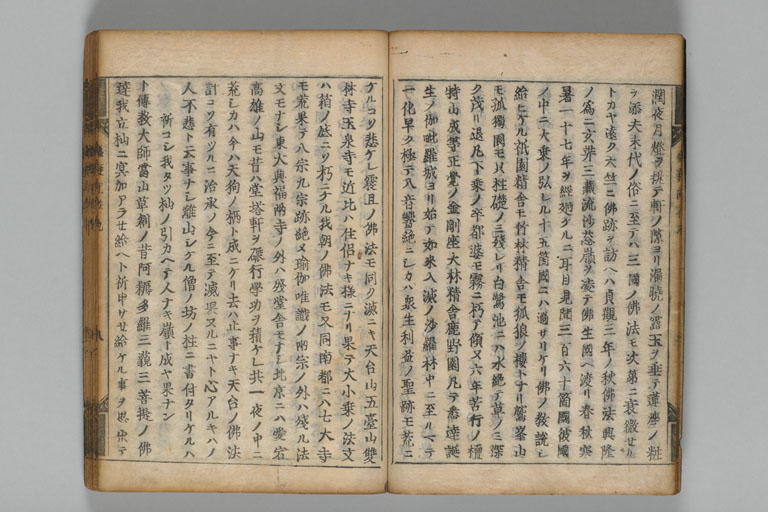 澗夜月燈ヲ挑テ軒ノ隙ヨリ漏暁ノ露玉ヲ垂テ蓮座ノ粧
ヲ添夫末代ノ俗ニ至テハ三國ノ佛法モ次第ニ衰微セリ
トカヤ遠ク天竺ニ佛跡ヲ訪ヘハ貞觀三年ノ秋佛法興隆
ノ為ニ玄弉三藏流沙葱嶺ヲ凌テ佛生國ヘ渡リ春秋寒
暑一十七年ヲ經廻ケルニ耳目見聞三百六十箇國彼國
ノ中ニ大乗ノ弘レル十五箇國ニハ過サリケリ佛ノ教說シ
給ヒケル祇園精舎モ竹林精舎モ狐狼ノ棲トナリ鷲峯山
モ孤獨園モ只柱礎ノミ殘レリ白鷺池ニハ水絶テ草ノミ深
ク茂リ退凡下乗ノ卒都婆モ霧ニ朽テ傾ヌ六年苦行ノ檀
特山成等正覺ノ金剛座大林精舎鹿野園凡テ悉達誕
生ノ伽毗羅城ヨリ始テ如來入滅ノ沙羅林中ニ至ルマテ
一化早ク極テ八音響絶ニシカハ衆生利益ノ聖跡モ荒ニ
ケルコソ悲ケレ震旦ノ佛法モ同ク滅ニキ天台山五臺山雙
林寺玉泉寺モ近比ハ住侶ナキ様ニナリ果テ大小乗ノ法文
ハ箱ノ底ニソ朽ニケル我朝ノ佛法モ又同南都ニハ七大寺
モ荒果テ八宗九宗跡絶ヌ瑜伽唯識ノ兩宗ノ外ハ殘ル法
文モナシ東大興福兩寺ノ外ハ殘堂舎モナシ北京ニハ愛宕
高雄ノ山モ昔ハ堂塔軒ヲ碾行學功ヲ積ケレ共一夜ノ中ニ
荒シカハ今ハ天狗ノ栖ト成ニケリ去ハ止事ナキ天台ノ佛法
計コソ有ツルニ治承ノ今ニ至テ滅果ヌルニヤト心アルキハノ
人不悲ト云事ナシ離山シケル僧ノ坊ノ柱ニ書付タリケルハ
祈コシ我タツ杣ノ引カヘテ人ナキ嶺ト成ヤ果ナン
ト傳教大師當山草創ノ昔阿耨多羅三藐三菩提ノ佛
達我立杣ニ冥加アラセ給ヘト祈申サセ給ケル事ヲ思出テ